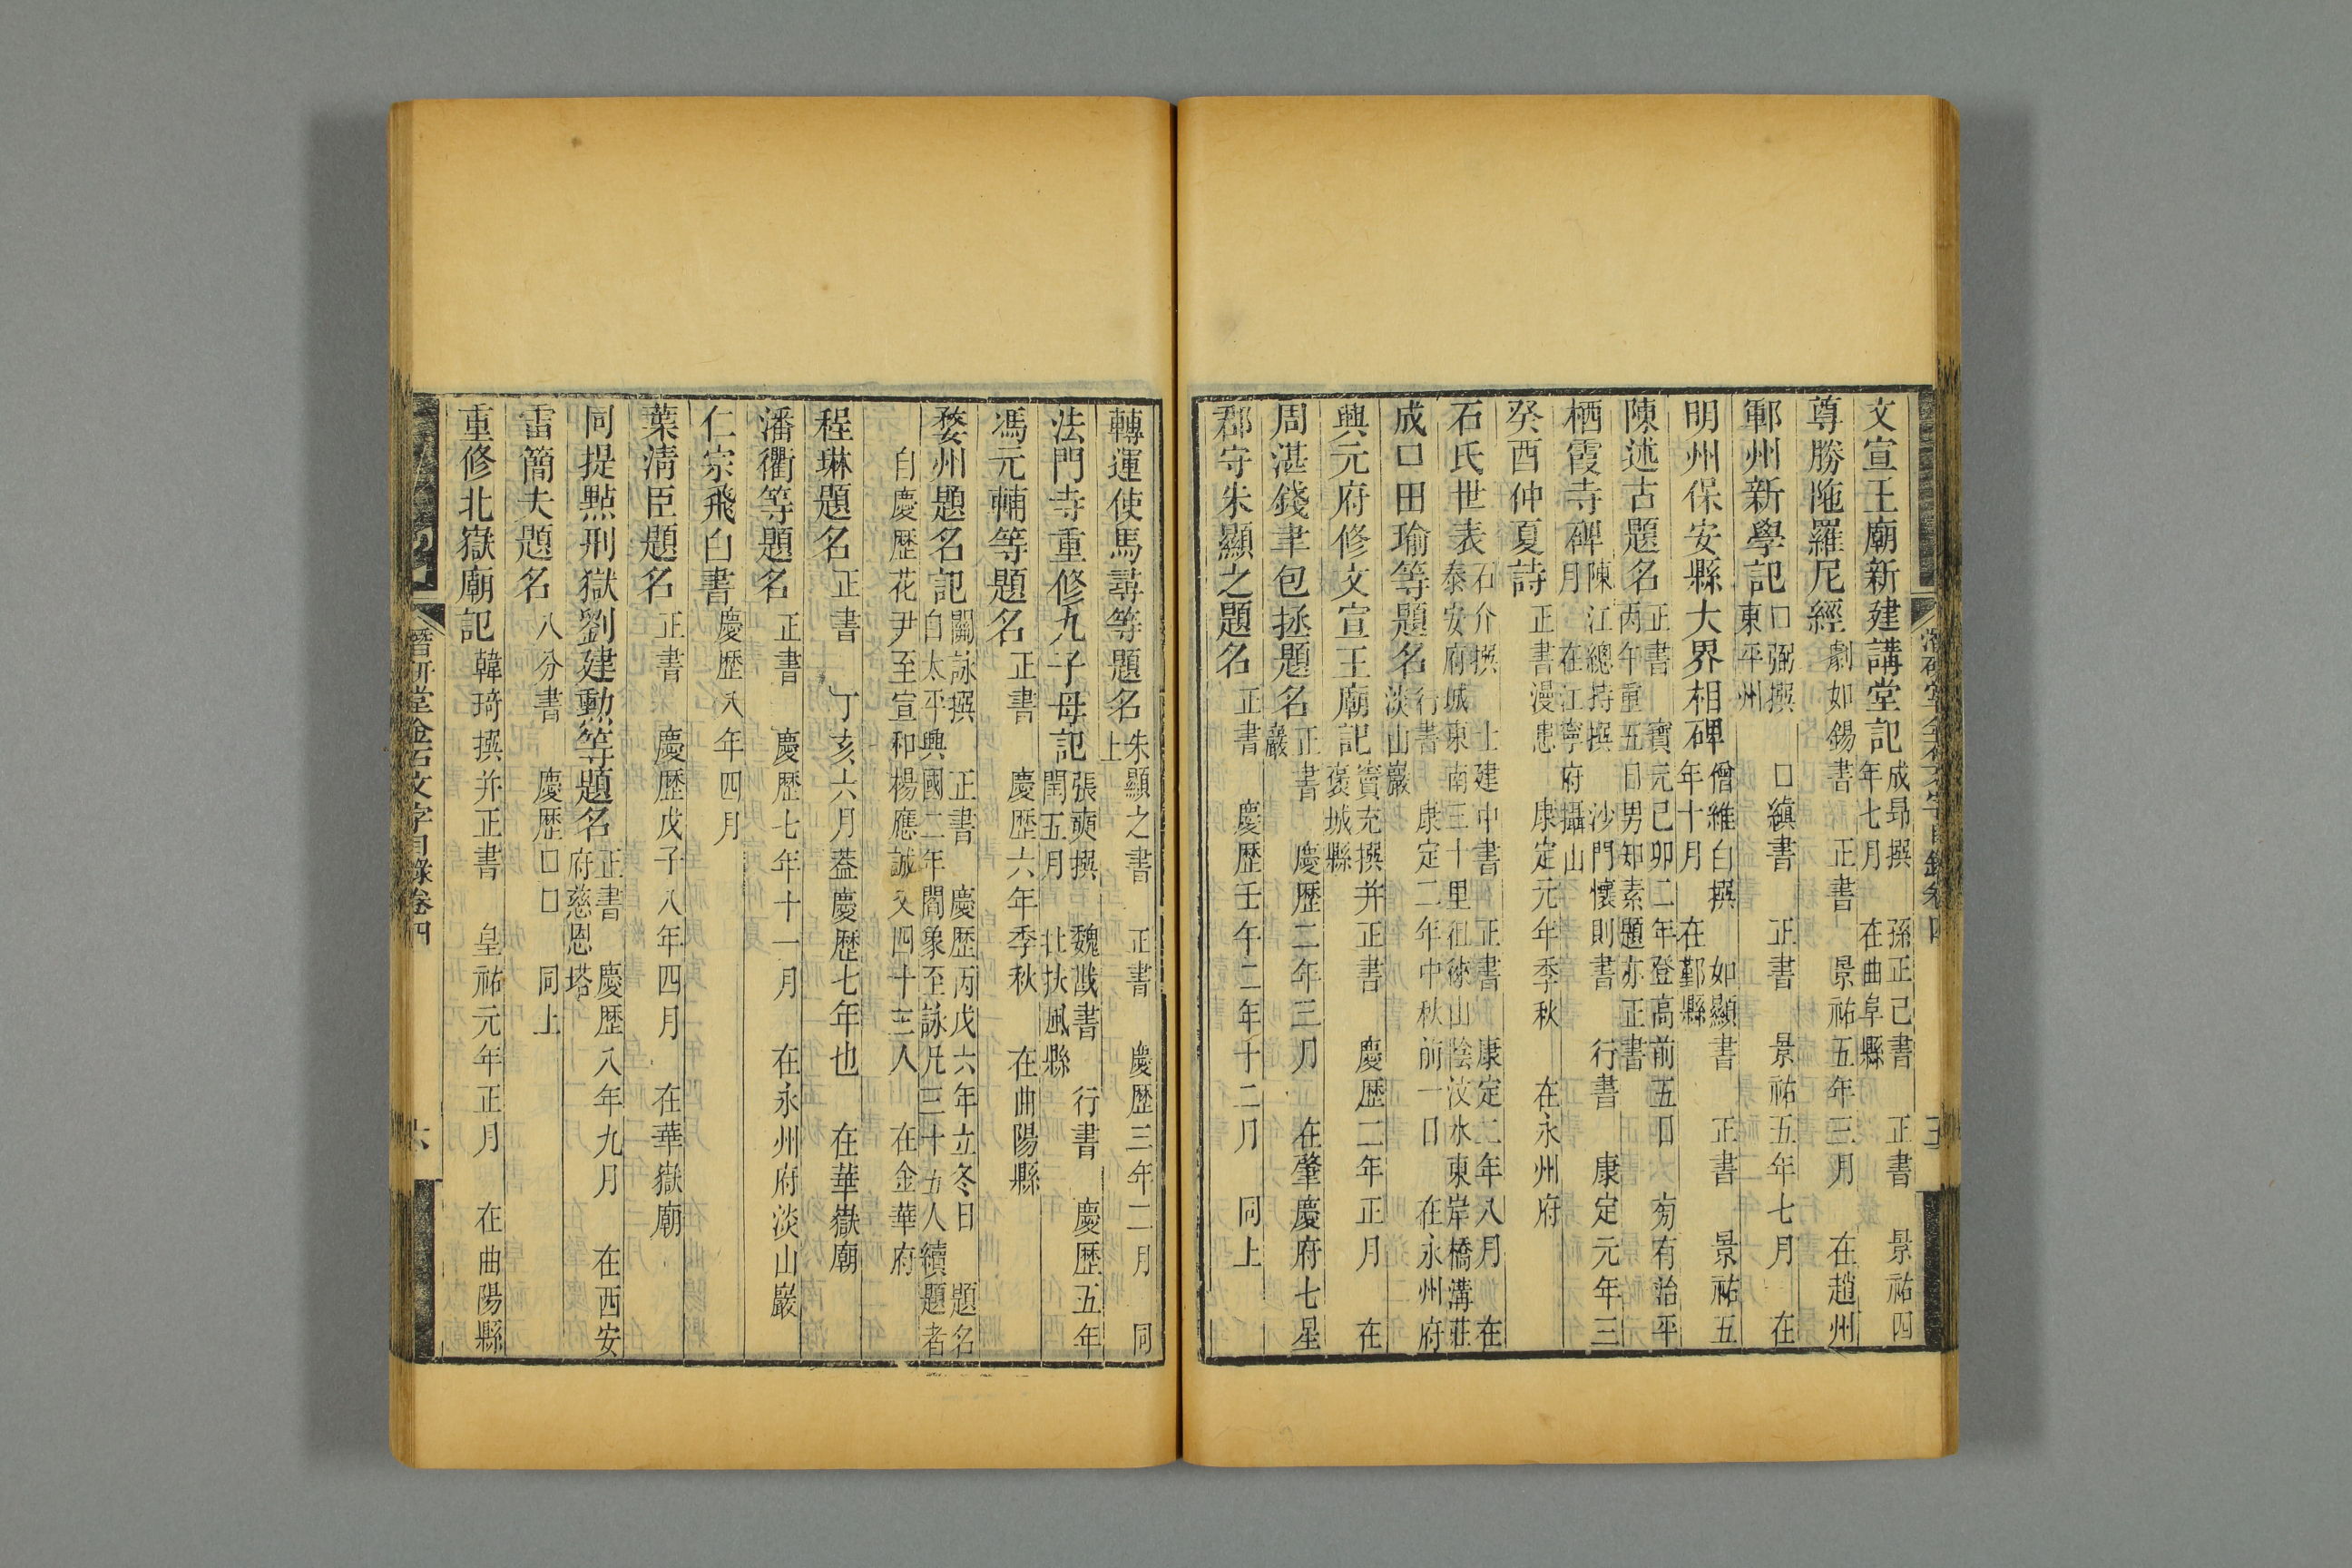 文宣王廟新建講堂記 成昻撰 孫正己書 正書 景祐四
年七月 在曲阜縣
尊勝陁羅尼經 劇如錫書 正書 景祐五年三月 在趙州
鄆州新學記 口弼撰 口縝書 正書 景祐五年七月 在
東平州
明州保安縣大界相碑 僧維白撰 如顯書 正書 景祐五
年十月 在鄞縣
陳述古題名 正書 寶元己卯二年登高前五日 旁有治平
丙午重五日男知素題亦正書
栖霞寺碑 陳江總持撰 沙門懷則書 行書 康定元年三
月 在江寧府攝山
癸酉仲夏詩 正書漫患 康定元年季秋 在永州府
石氏世表 石介撰 士建中書 正書 康定二年八月 在
泰安府城東南三十里徂徠山陰汶水東岸橋溝莊
成口田瑜等題名 行書 康定二年中秋前一日 在永州府
淡山巖
興元府修文宣王廟記 竇充撰并正書 慶歴二年正月 在
褒城縣
周湛錢聿包拯題名 正書 慶歴二年三月 在肇慶府七星
巖
郡守朱顯之題名 正書 慶歴壬午二年十二月 同上
潛研堂金石文字目錄卷四 五
轉運使馬尋等題名 朱顯之書 正書 慶歴三年二月 同
上
法門寺重修九子母記 張奭撰 魏戩書 行書 慶歴五年
閏五月 扶風縣
馮元輔等題名 正書 慶歴六年季秋 在曲陽縣
婺州題名記 關詠撰 正書 慶歴丙戌六年立冬日 題名
自太平興國二年閻象至詠凡三十五人續題者
自慶歴花尹至宣和楊應誠又四十三人 在金華府
程琳題名 正書 丁亥六月葢慶歴七年也 在華嶽廟
潘衢等題名 正書 慶歴七年十一月 在永州府淡山巖
仁宗飛白書 慶歴八年四月
葉淸臣題名 正書 慶歴戊子八年四月 在華嶽廟
同提㸃刑獄劉建勲等題名 正書 慶歴八年九月 在西安
府慈恩塔
雷簡夫題名 八分書 慶歴口口 同上
重修北嶽廟記 韓琦撰并正書 皇祐元年正月 在曲陽縣
潛研堂金石文字目錄卷四 六